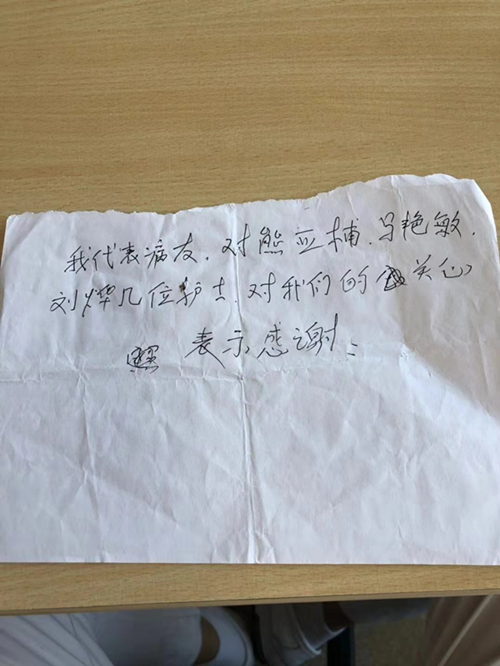 我代表病友.对熊亚楠.马艳敏.
刘烨几位护士.对我们的关心
表示感谢: